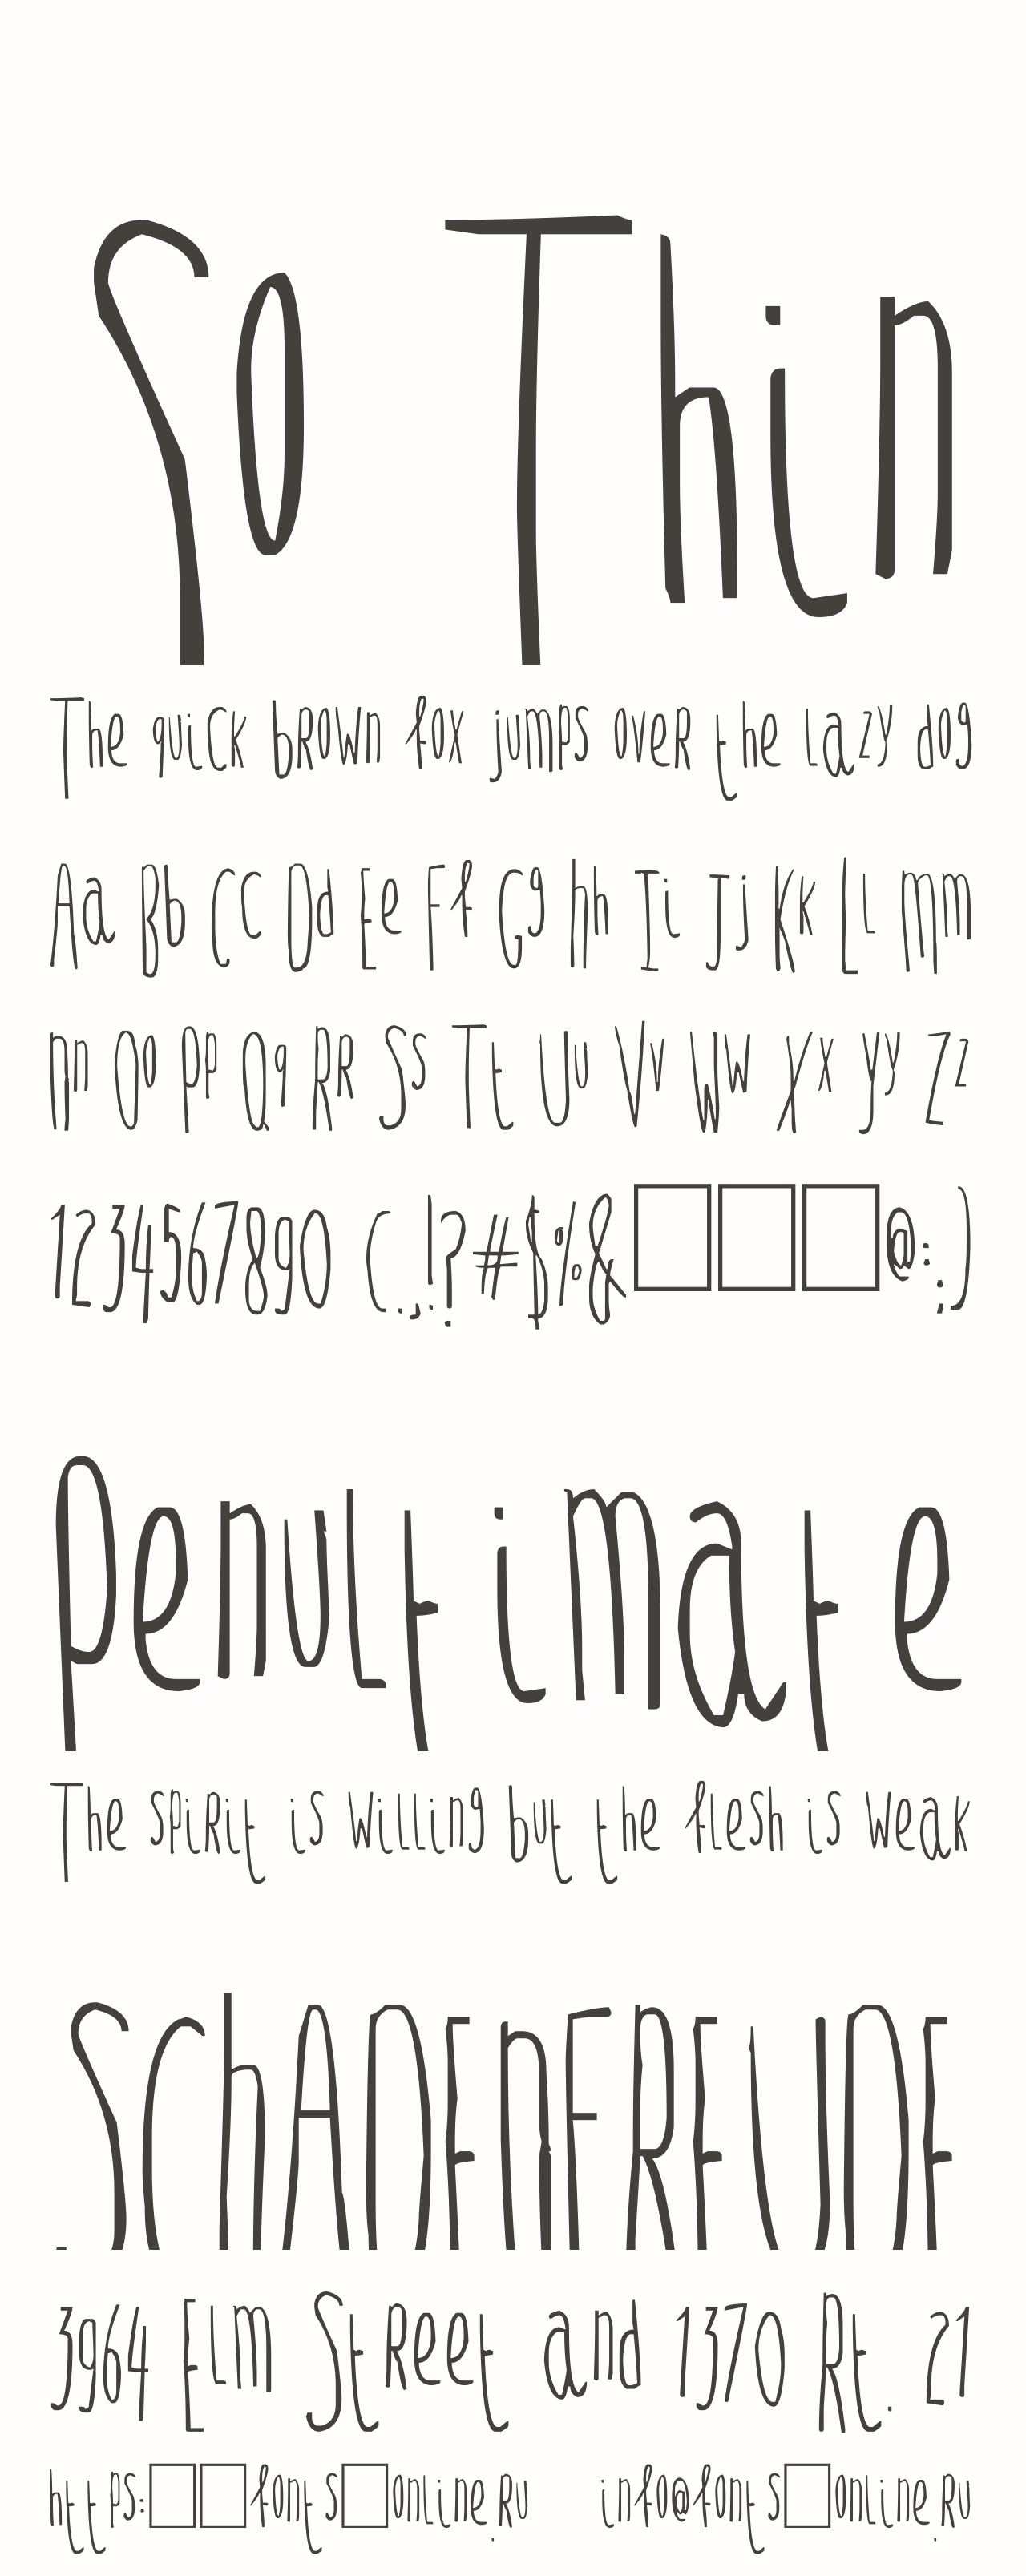 So Thin
The quick brown fox jumps over the lazy dog
Aa Bb Cc Dd Ee Ff Gg Hh Ii Jj Kk Ll Mm
Nn Oo Pp Qq Rr Ss Tt Uu Vv Ww Xx Yy Zz
1234567890 (.,!?#$%&□□□@:;)
Penultimate
The spirit is willing but the flesh is weak
SCHADENFREUDE
3964 Elm Street and 1370 Rt. 21
https:□□fonts□online.ru info@fonts□online.ru